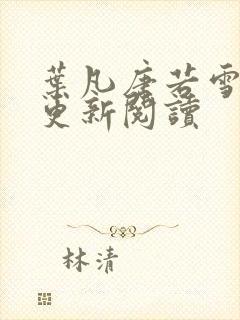 葉凡唐若雪
更新閱讀
林清